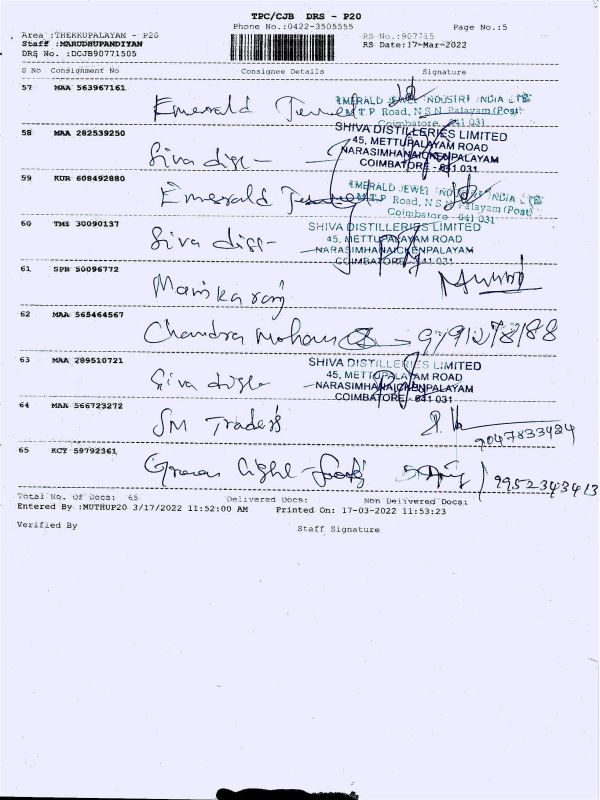 TPC/CJB DRS - P20
Phone No.:0422-3505555 Page No.:5
Area :THEKKUPALAYAM - P20 RS No.:907715
Staff :MARUDHUPANDIYAN RS Date:17-Mar-2022
DRS No. :DCJB90771505
S No Consignment No Consignee Details Signature
57 MAA 563967161
Emerald Jewel EMERALD JEWEL INDUSTRY INDIA LTD
M.T.P Road, N.S.N Palayam (Post)
Coimbatore - 641 031
58 MAA 282539250
Siva dise - SHIVA DISTILLERIES LIMITED
45, METTUPALAYAM ROAD
NARASIMHANAICKENPALAYAM
COIMBATORE - 641 031
59 KUR 608492880
Emerald EMERALD JEWEL IND INDIA
M.T.P Road, N.S.N Palayam (Post)
Coimbatore - 641 031
60 TMI 30090137
Siva diss- SHIVA DISTILLERIES LIMITED
45, METTUPALAYAM ROAD
NARASIMHANAICKENPALAYAM
COIMBATORE - 641 031
61 SPB 50096772
Manikaraj
62 MAA 565464567
Chandra Mohan 9791278188
63 MAA 289510721
Siva SHIVA DISTILLERIES LIMITED
45, METTUPALAYAM ROAD
NARASIMHANAICKENPALAYAM
COIMBATORE - 641 031
64 MAA 566723272
SM Traders
9047833424
65 KCY 59792361
Light 9952343413
Total No. Of Docs: 65 Delivered Docs: Non Delivered Docs:
Entered By :MUTHUP20 3/17/2022 11:52:00 AM Printed On: 17-03-2022 11:53:23
Verified By Staff Signature